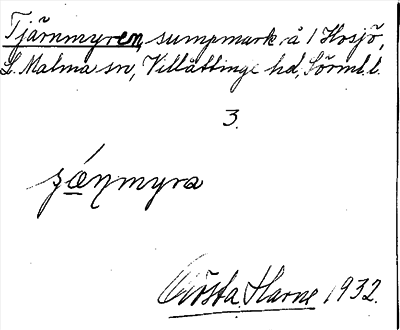 Tjärnmyren, sumpmark å 1 Hosjö,
L. Malma sn, Villåttinge hd, Sörml. l.
3.
Gösta Harne 1932.